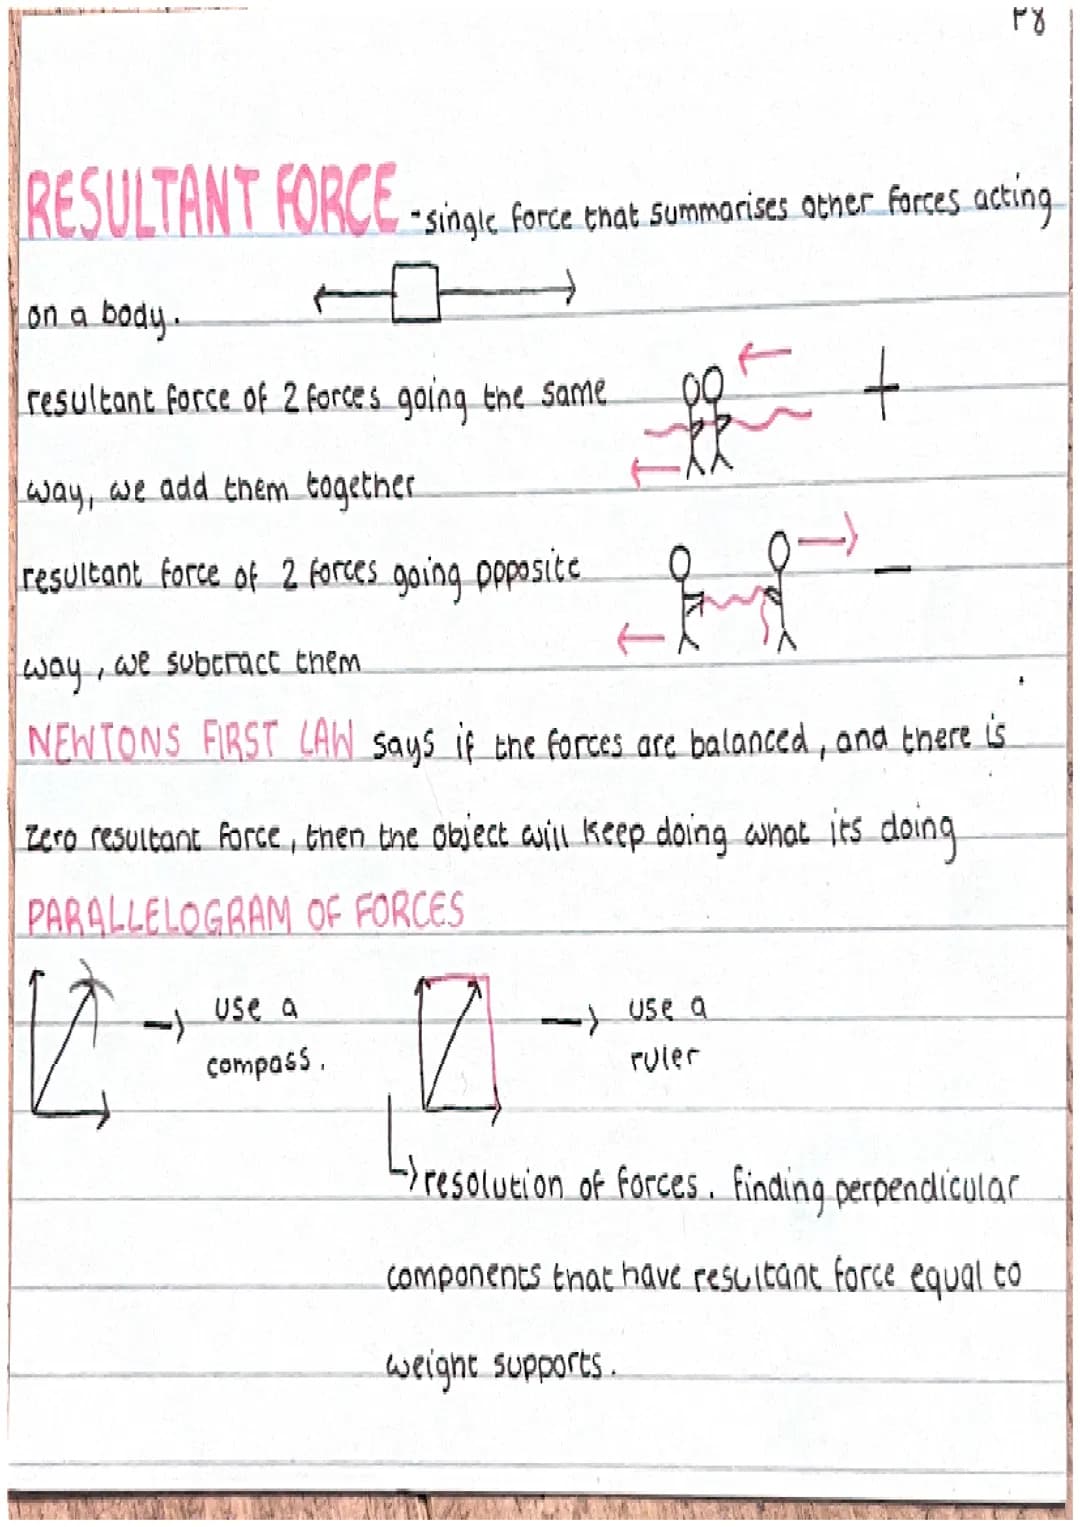 P8
RESULTANT FORCE - single force that summarises other forces acting
on a body.
resultant force of 2 forces going the same
+
way, we add them together
resultant force of 2 forces going opposite
−
way, we subtract them
NEWTONS FIRST LAW says if the forces are balanced, and there is
zero resultant force, then the object will keep doing what its doing
PARALLELOGRAM OF FORCES
use a
compass.
use a
ruler
resolution of forces. finding perpendicular
components that have resultant force equal to
weight supports.